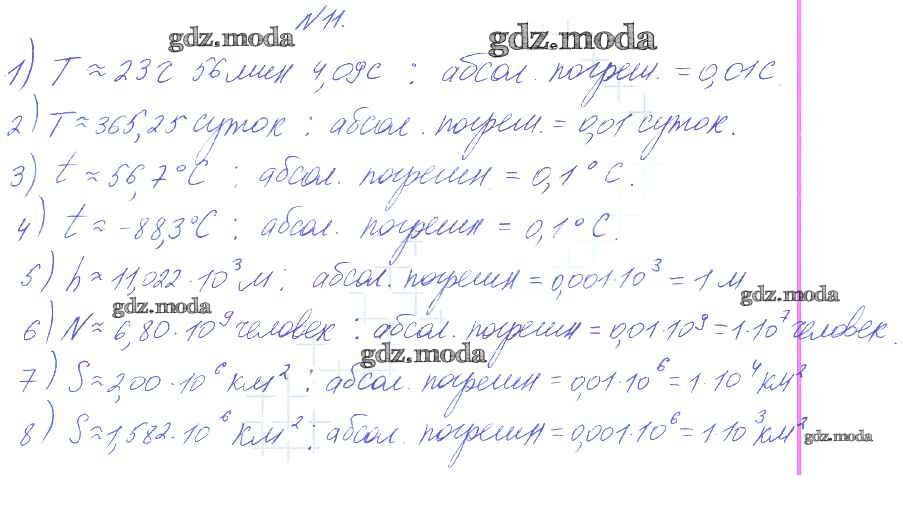 N 11.
gdz.moda gdz.moda
1) T ≈ 23 г 56 мин 4,09 с ; абсол. погреш. = 0,01 с
2) T ≈ 365,25 суток ; абсол. погреш. = 0,01 суток.
3) t ≈ 56,7°C ; абсол. погрешн = 0,1°C.
4) t ≈ -88,3°C ; абсол. погрешн = 0,1°C.
5) h ≈ 11,022·10³ м ; абсол. погрешн = 0,001·10³ = 1 м
gdz.moda gdz.moda
6) N ≈ 6,80·10⁹ человек ; абсол. погрешн = 0,01·10⁹ = 1·10⁷ человек.
gdz.moda
7) S ≈ 2,00·10⁶ км² ; абсол. погрешн = 0,01·10⁶ = 1·10⁴ км²
8) S ≈ 1,582·10⁶ км² ; абсол. погрешн = 0,001·10⁶ = 1·10³ км²
gdz.moda